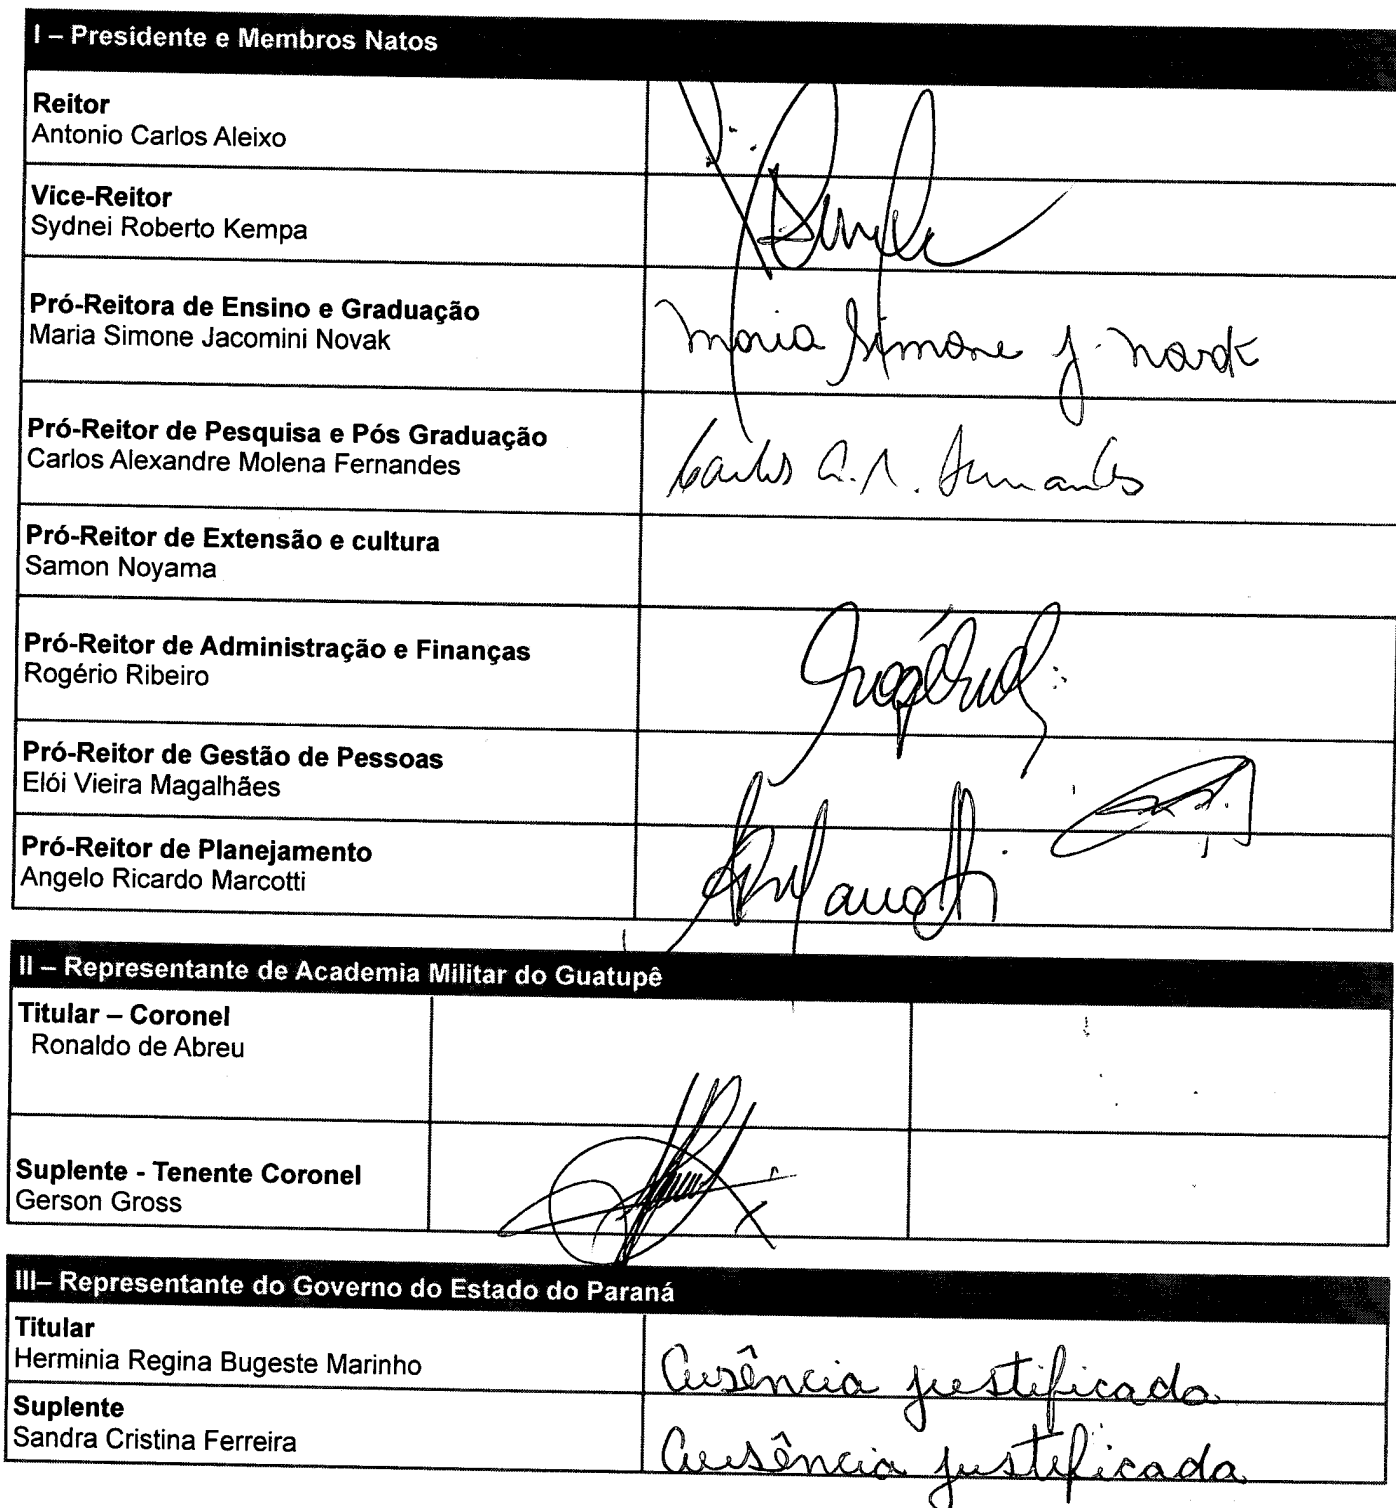 I – Presidente e Membros Natos
Reitor
Antonio Carlos Aleixo
Vice-Reitor
Sydnei Roberto Kempa
Pró-Reitora de Ensino e Graduação
Maria Simone Jacomini Novak
Maria Simone J. Novak
Pró-Reitor de Pesquisa e Pós Graduação
Carlos Alexandre Molena Fernandes
Carlos A. M. Fernandes
Pró-Reitor de Extensão e cultura
Samon Noyama
Pró-Reitor de Administração e Finanças
Rogério Ribeiro
Pró-Reitor de Gestão de Pessoas
Elói Vieira Magalhães
Pró-Reitor de Planejamento
Angelo Ricardo Marcotti
II – Representante de Academia Militar do Guatupê
Titular – Coronel
Ronaldo de Abreu
Suplente - Tenente Coronel
Gerson Gross
III– Representante do Governo do Estado do Paraná
Titular
Herminia Regina Bugeste Marinho
Ausência justificada
Suplente
Sandra Cristina Ferreira
Ausência justificada